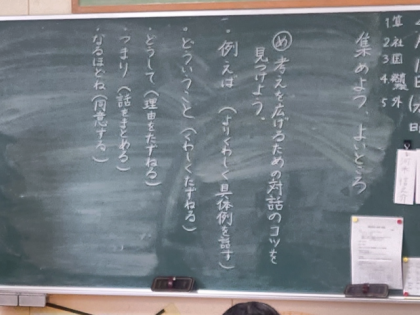 集めよう、よいところ
め 考えを広げるための対話のコツを
見つけよう。
・例えば (よりくわしく具体例を話す)
・どういうこと (くわしくたずねる)
・どうして (理由をたずねる)
・つまり (話をまとめる)
・なるほどね (同意する)
1 算
2 社
3 国
4
5 外